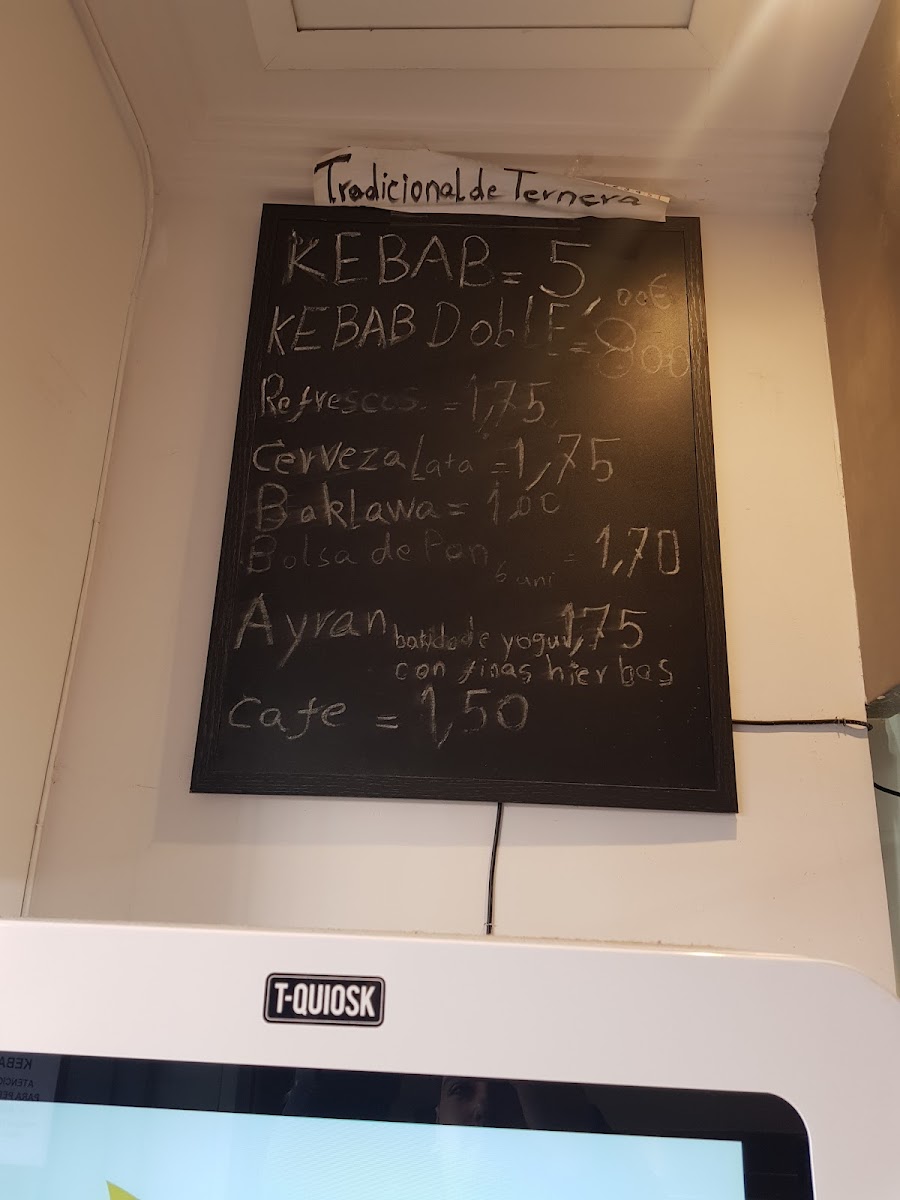 Tradicional de Ternera
KEBAB = 5,00€
KEBAB DoblE = 8,00
Refrescos. = 1,75
Cerveza Lata = 1,75
Baklawa = 1,00
Bolsa de Pan 6 uni = 1,70
Ayran batido de yogur 1,75
con finas hierbas
Cafe = 1,50
T-QUIOSK